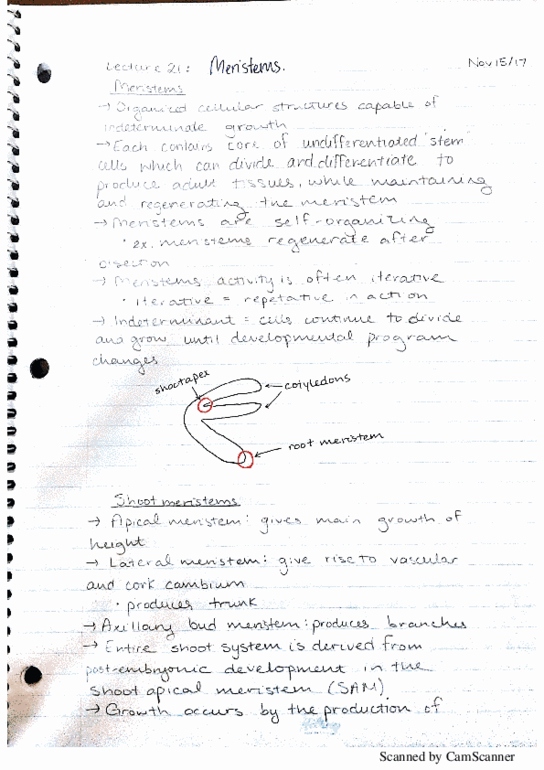 Lecture 21: Meristems. Nov 15/17
Meristems
→ Organized cellular structures capable of
indeterminate growth
→ Each contains core of undifferentiated "stem"
cells which can divide and differentiate to
produce adult tissues, while maintaining
and regenerating the meristem
→ Meristems are self-organizing
• ex. meristems regenerate after
disection
→ Meristems activity is often iterative
• iterative = repetative in action
→ Indeterminant = cells continue to divide
and grow until developmental program
changes
shoot apex
cotyledons
root meristem
Shoot meristems
→ Apical meristem: gives main growth of
height
→ Lateral meristem: give rise to vascular
and cork cambium
• produces trunk
→ Axillary bud meristem: produces branches
→ Entire shoot system is derived from
post-embryonic development in the
shoot apical meristem (SAM)
→ Growth occurs by the production of
Scanned by CamScanner